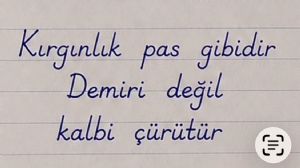 Kırgınlık pas gibidir
Demiri değil
kalbi çürütür